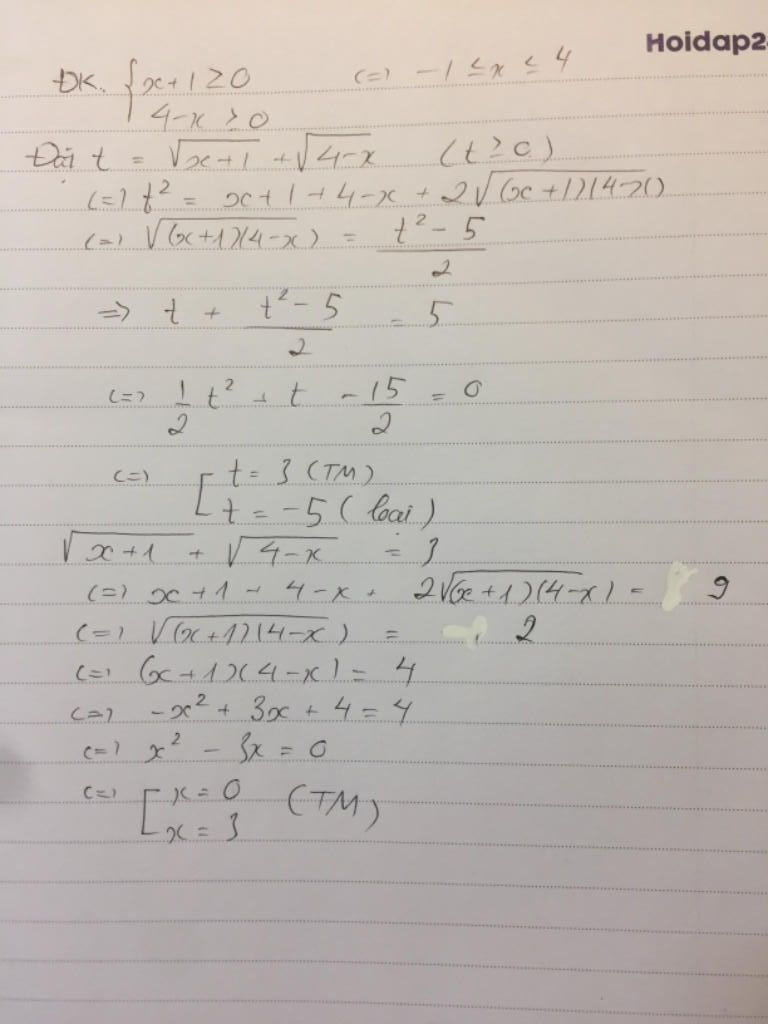 Hoidap2
ĐK. { x+1 ≥ 0 (=) -1 ≤ x ≤ 4
4-x ≥ 0
Đặt t = √(x+1) + √(4-x) (t ≥ 0)
(=) t² = x+1 + 4-x + 2√((x+1)(4-x))
(=) √((x+1)(4-x)) = (t² - 5)/2
=> t + (t² - 5)/2 = 5
(=) 1/2 t² + t - 15/2 = 0
(=) [ t = 3 (TM)
t = -5 (loại)
√(x+1) + √(4-x) = 3
(=) x+1 + 4-x + 2√((x+1)(4-x)) = 9
(=) √((x+1)(4-x)) = 2
(=) (x+1)(4-x) = 4
(=) -x² + 3x + 4 = 4
(=) x² - 3x = 0
(=) [ x = 0 (TM)
x = 3